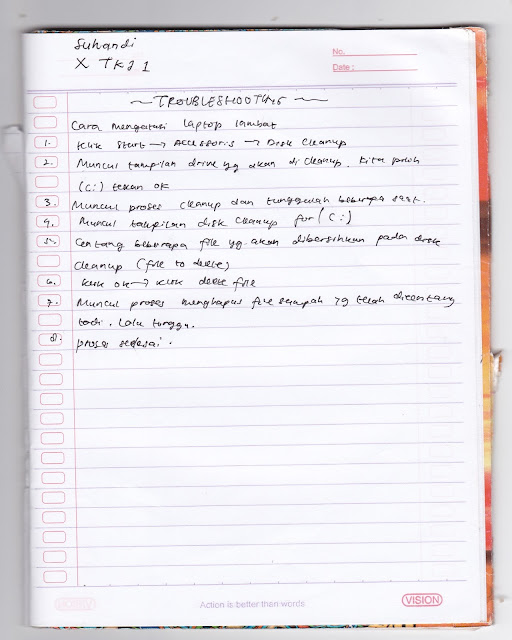 Suhandi
X TKJ 1
No.
Date :
~ TROUBLESHOOTING ~
Cara mengatasi laptop lambat
1. Klik Start → Accessoris → Disk Cleanup
2. Muncul tampilan drive yg akan di cleanup. Kita pilih
(C:) tekan OK
3. Muncul proses cleanup dan tunggulah beberapa saat.
4. Muncul tampilan disk cleanup for (C:)
5. Centang beberapa file yg akan dibersihkan pada disk
cleanup (file to delete)
6. Klik OK → Klik delete file
7. Muncul proses menghapus file sampah yg telah dicentang
tadi. Lalu tunggu.
8. proses selesai.
HOBBY
Action is better than words
VISION